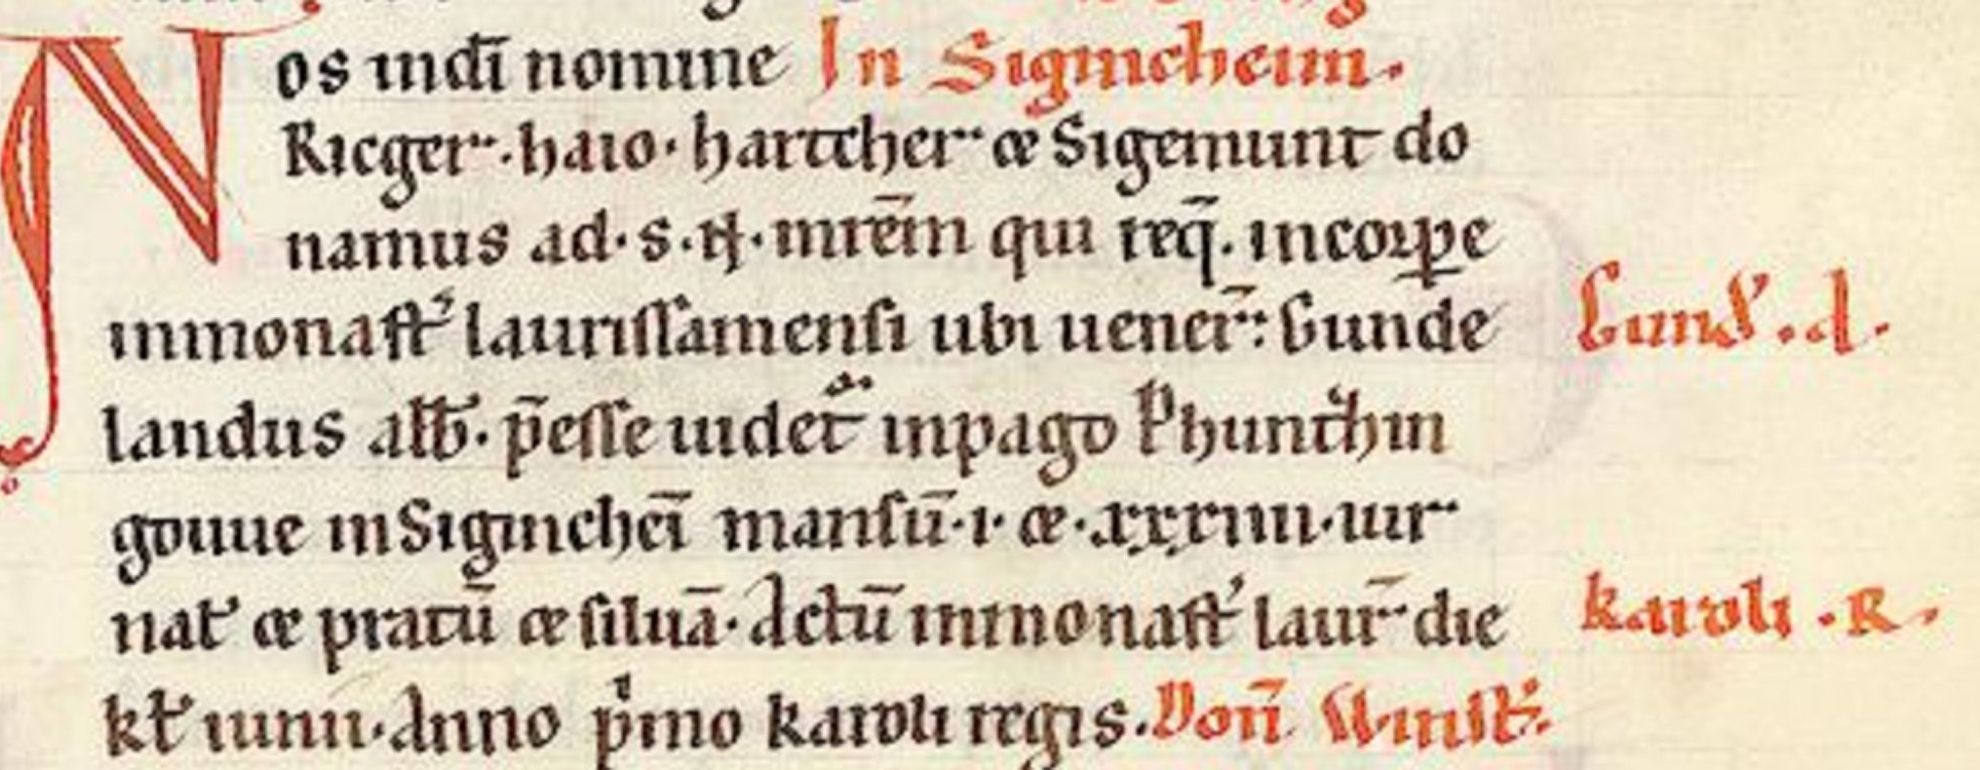 Nos in di nomine In Siginicheim.
Ricger. haio. hartcher & Sigemunt do
namus ad. s. N. mrem qui req. in corpe
in monast laurissamensi ubi uener: Gunde Gund. d.
landus abb. peesse uidet in pago Phunthin
gouue in Sigincheī mansū. i. & . xxxiiii. iur
nat & pratū & siluā. Actū in monast laur die karoli . R.
kl iunii. Anno pmo karoli regis. Don